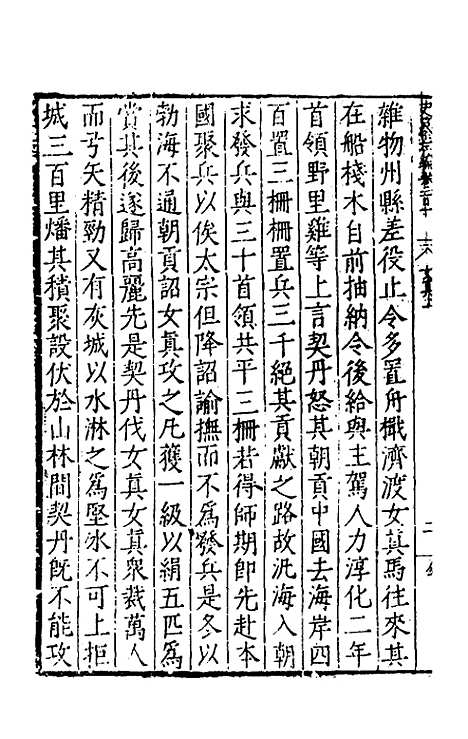 雜物州縣差役止令多置舟檝濟渡女真馬往來其
在船棧木自前抽納令後給與主駕人力淳化二年
首領野里雞等上言契丹怒其朝貢中國去海岸四
百置三柵柵置兵三千絕其貢獻之路故汎海入朝
求發兵與三十首領共平三柵若得師期即先赴本
國聚兵以俟太宗但降詔諭撫而不爲發兵是冬以
勃海不通朝貢詔女真攻之凡獲一級以絹五匹爲
賞其後遂歸高麗先是契丹伐女真女真眾裁萬人
而弓矢精勁又有灰城以水淋之爲堅冰不可上拒
城三百里燔其積聚設伏於山林間契丹旣不能攻